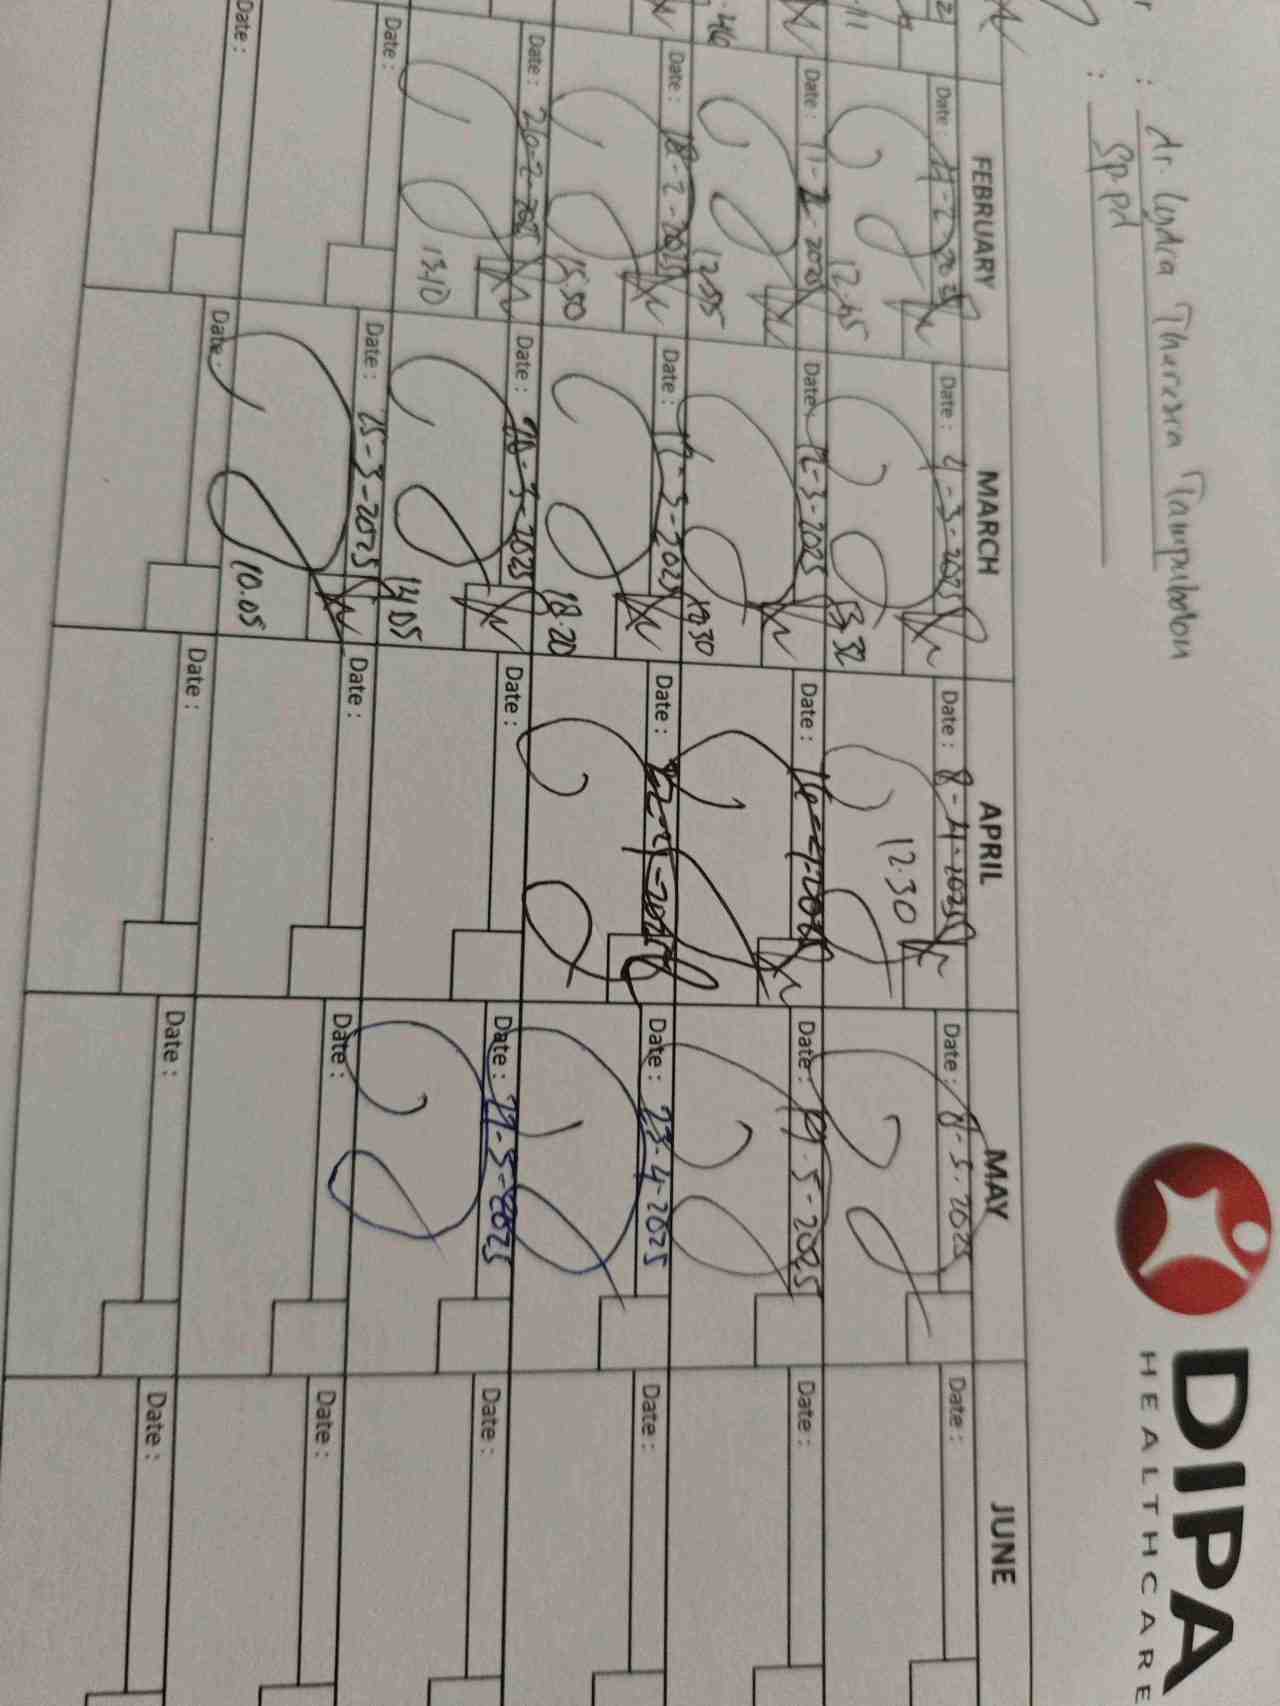 DIPA
HEALTHCARE
: dr. Londra Tharesia Tampubolon
: Sp.pd
FEBRUARY MARCH APRIL MAY JUNE
Date: 4-2-2025 Date: 4-3-2025 Date: 8-4-2025 Date: 8-5-2025 Date:
12.45 13.32 12.30
Date: 11-2-2025 Date: 12-3-2025 Date: Date: 19-5-2025 Date:
12.55 19.30
Date: 18-2-2025 Date: 17-3-2025 Date: 22-4-2025 Date: 23-4-2025 Date:
15.50 18.20
Date: 20-2-2025 Date: 20-3-2025 Date: Date: 27-5-2025 Date:
13.10 14.05
Date: Date: 25-3-2025 Date: Date: Date:
10.05
Date: Date: Date: Date: Date: